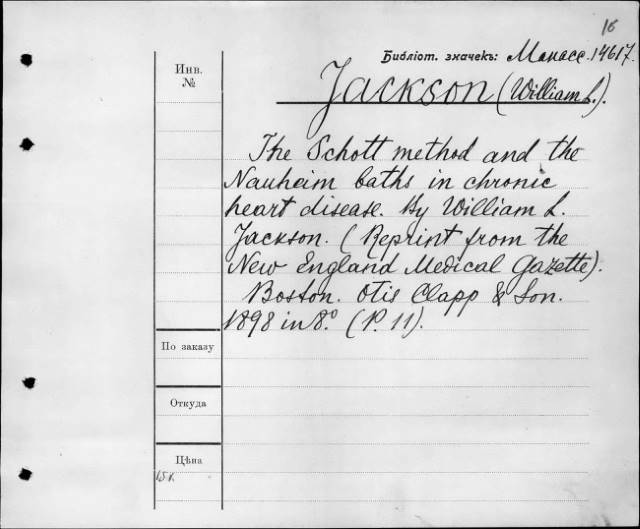 16
Библіот. значекъ: Манасс. 14617.
Инв.
№
Jackson (William L.).
The Schott method and the
Nauheim baths in chronic
heart disease. By William L.
Jackson. (Reprint from the
New England Medical Gazette).
Boston. Otis Clapp & Son.
1898 in 8.º (P. 11).
По заказу
Откуда
Цѣна
15 к.